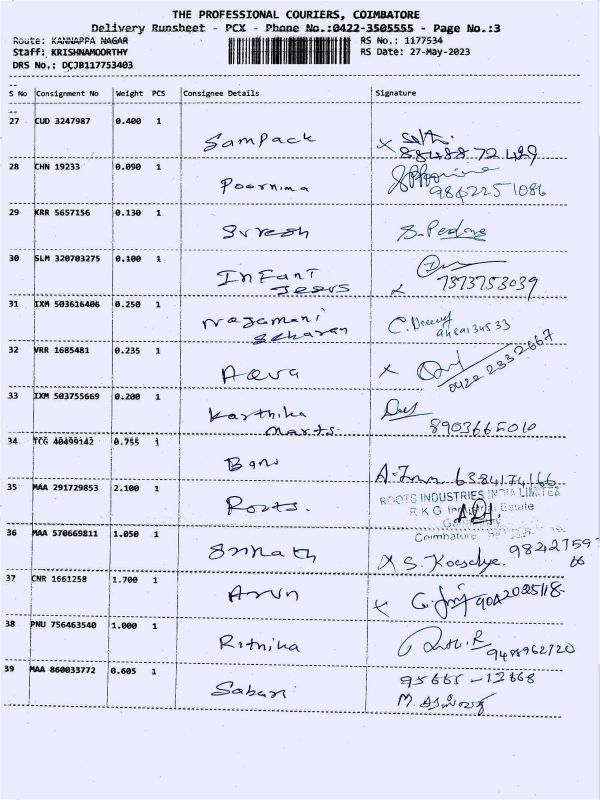 THE PROFESSIONAL COURIERS, COIMBATORE
Delivery Runsheet - PCX - Phone No.:0422-3505555 - Page No.:3
Route: KANNAPPA NAGAR RS No.: 1177534
Staff: KRISHNAMOORTHY RS Date: 27-May-2023
DRS No.: DCJB117753403
S No Consignment No Weight PCS Consignee Details Signature
27 CUD 3247987 0.400 1
Sampack
88488 72489
28 CHN 19233 0.090 1
Poornima 9842251086
29 KRR 5657156 0.130 1
Suresh
30 SLM 320703275 0.100 1
Infant
Jesus 7373753039
31 IXM 503616406 0.250 1
Nagamani
Sekaran
32 VRR 1685481 0.235 1
0422 2332667
33 IXM 503755669 0.200 1
Karthika
Marts. 8903665010
34 TCG 40499142 0.755 1
Banu
6384174166
35 MAA 291729853 2.100 1
ROOTS INDUSTRIES INDIA LIMITED
Roots. R K G Industrial Estate
Coimbatore
36 MAA 570669811 1.050 1
Srinath
37 CNR 1661258 1.700 1
Arun
38 PNU 756463540 1.000 1
Rithika
39 MAA 860033772 0.605 1
Sabari 95665-12668